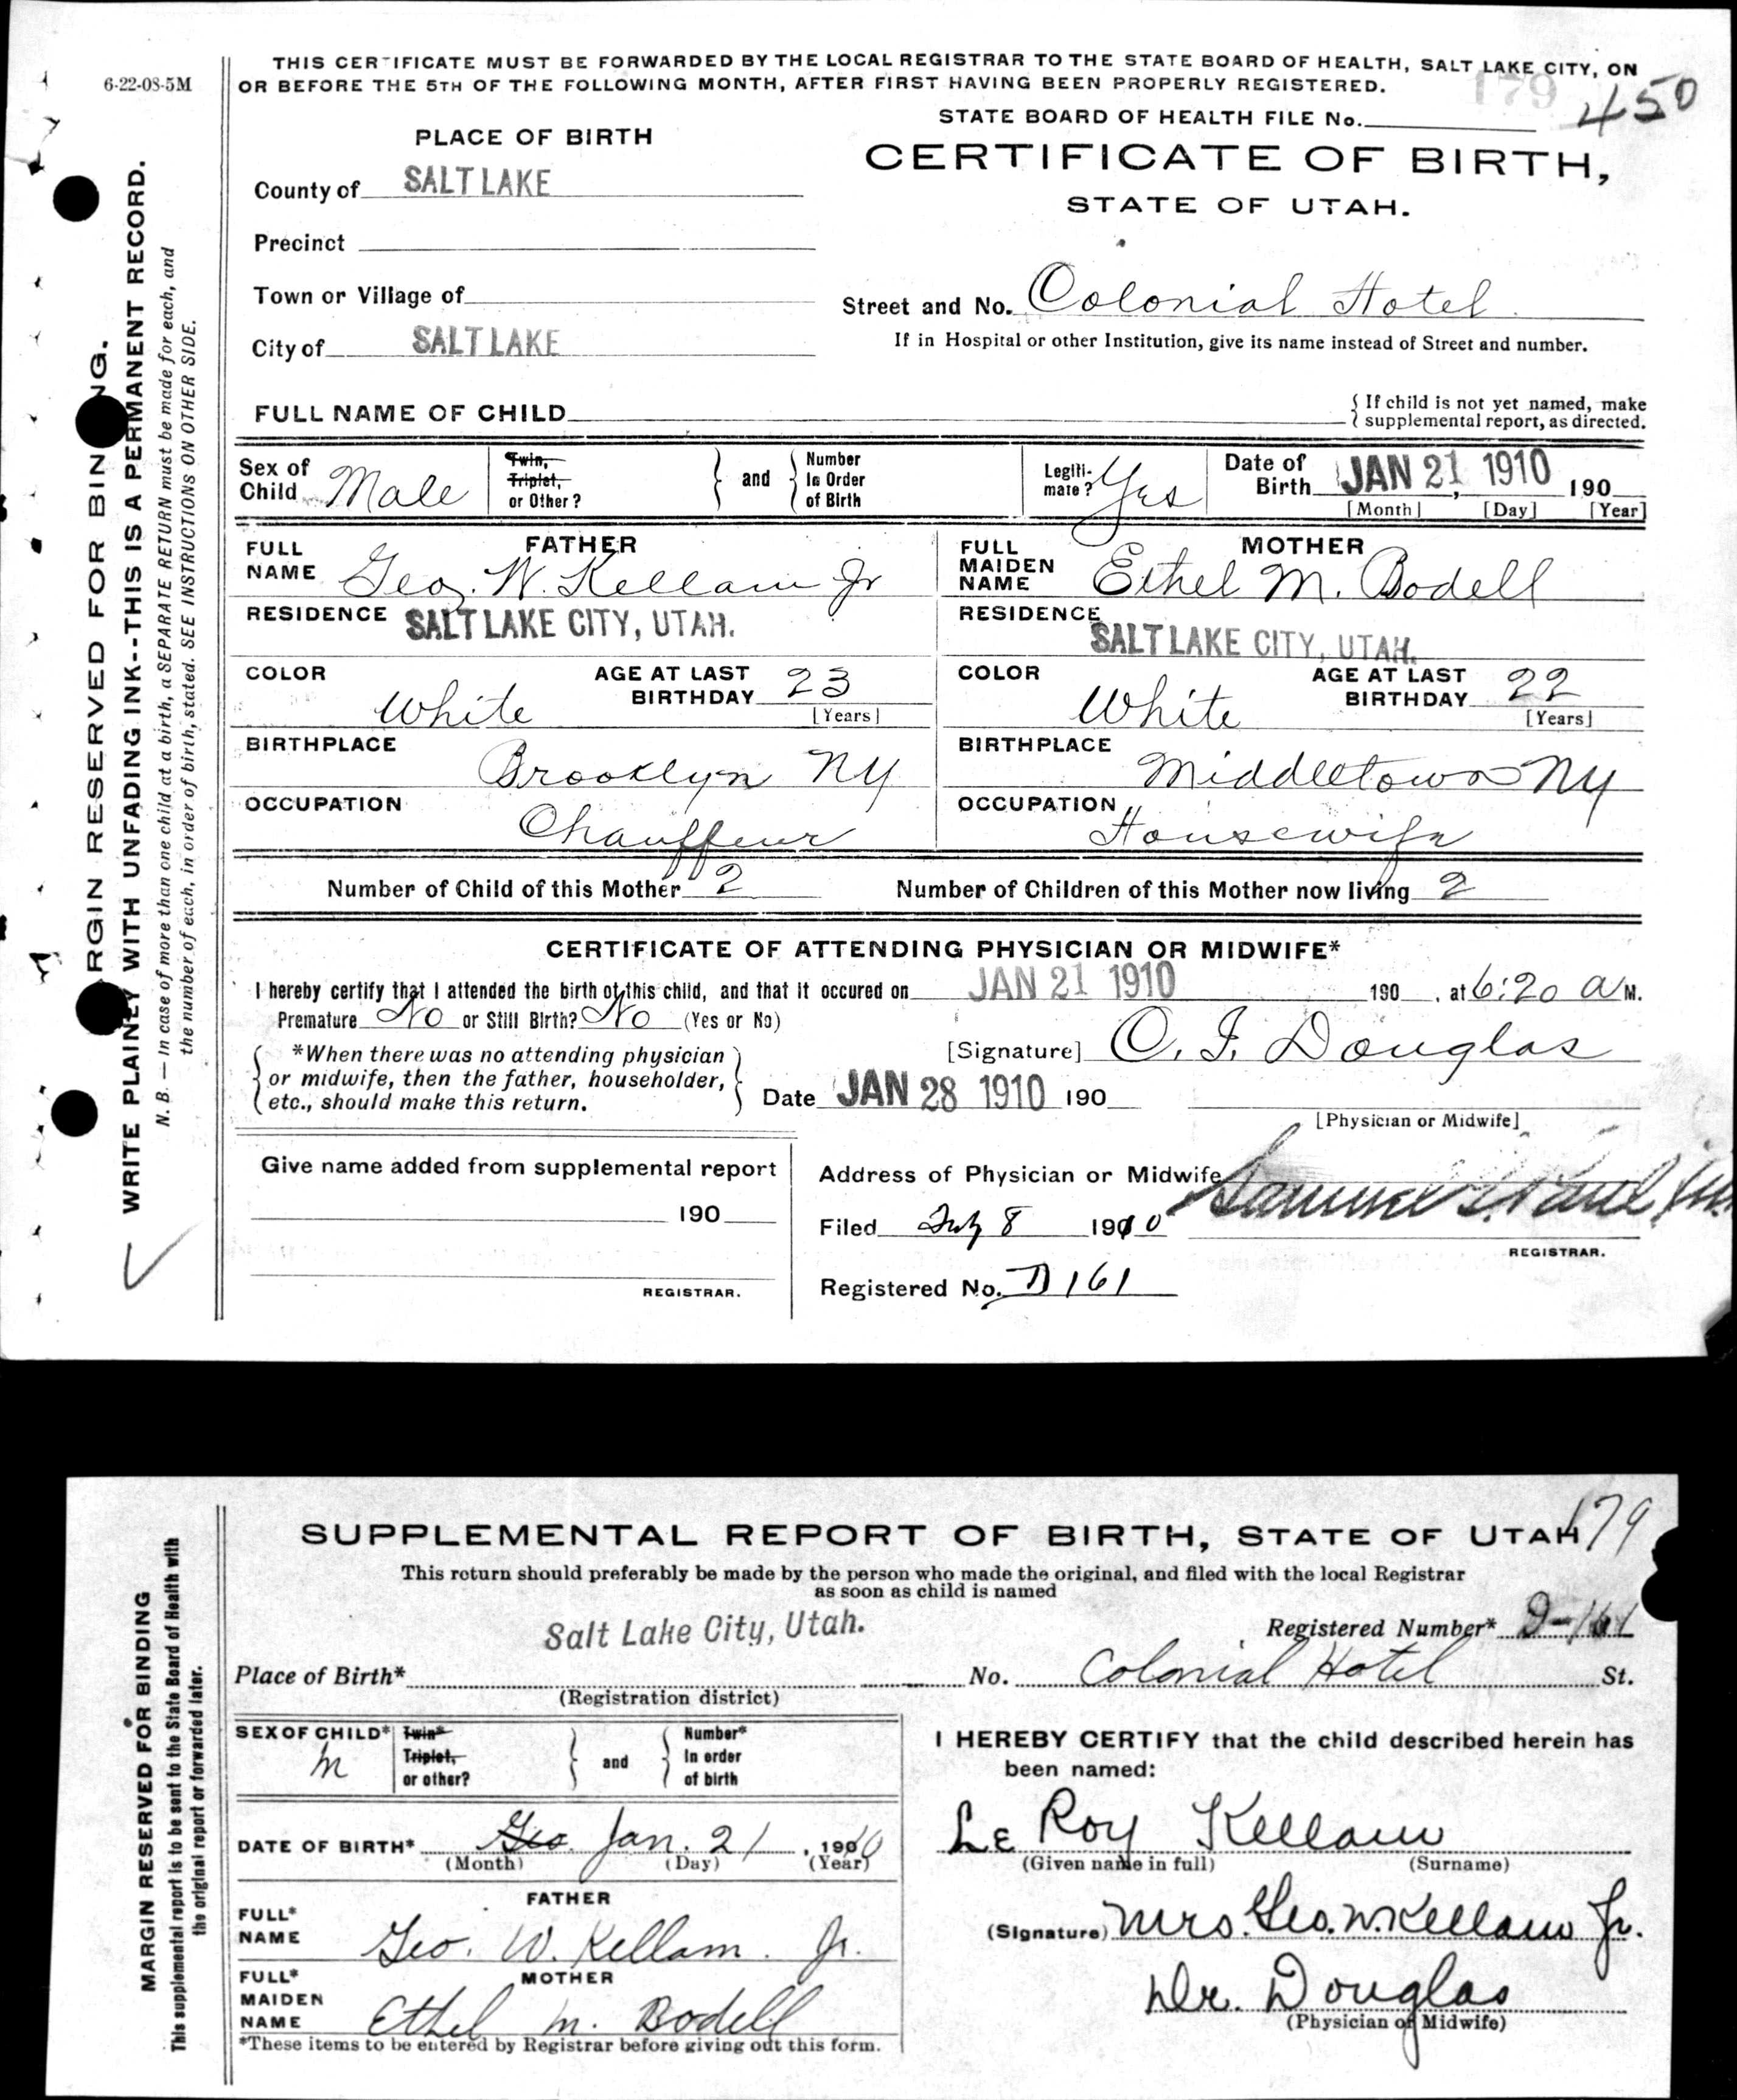 6-22-08-5M
THIS CERTIFICATE MUST BE FORWARDED BY THE LOCAL REGISTRAR TO THE STATE BOARD OF HEALTH, SALT LAKE CITY, ON
OR BEFORE THE 5TH OF THE FOLLOWING MONTH, AFTER FIRST HAVING BEEN PROPERLY REGISTERED.
179 450
STATE BOARD OF HEALTH FILE No.
PLACE OF BIRTH
CERTIFICATE OF BIRTH,
STATE OF UTAH.
County of SALT LAKE
Precinct
Town or Village of
Street and No. Colonial Hotel
City of SALT LAKE
If in Hospital or other Institution, give its name instead of Street and number.
FULL NAME OF CHILD
If child is not yet named, make
supplemental report, as directed.
Sex of Child Male
Twin, Triplet, or Other? and Number In Order of Birth
Legitimate? Yes
Date of Birth JAN 21 1910 190
[Month] [Day] [Year]
FATHER
FULL NAME Geo. W. Kellam Jr
RESIDENCE SALT LAKE CITY, UTAH.
COLOR White AGE AT LAST BIRTHDAY 23
[Years]
BIRTHPLACE Brooklyn NY
OCCUPATION Chauffeur
MOTHER
FULL MAIDEN NAME Ethel M. Bodell
RESIDENCE SALT LAKE CITY, UTAH.
COLOR White AGE AT LAST BIRTHDAY 22
[Years]
BIRTHPLACE Middletown NY
OCCUPATION Housewife
Number of Child of this Mother 2 Number of Children of this Mother now living 2
CERTIFICATE OF ATTENDING PHYSICIAN OR MIDWIFE*
I hereby certify that I attended the birth of this child, and that it occured on JAN 21 1910 190 , at 6:20 a M.
Premature No or Still Birth? No (Yes or No)
*When there was no attending physician
or midwife, then the father, householder,
etc., should make this return.
[Signature] O. J. Douglas
Date JAN 28 1910 190
[Physician or Midwife]
Give name added from supplemental report
190
REGISTRAR.
Address of Physician or Midwife
Filed 8 1910
REGISTRAR.
Registered No. D 161
MARGIN RESERVED FOR BINDING.
WRITE PLAINLY WITH UNFADING INK--THIS IS A PERMANENT RECORD.
N. B. — In case of more than one child at a birth, a SEPARATE RETURN must be made for each, and
the number of each, in order of birth, stated. SEE INSTRUCTIONS ON OTHER SIDE.
179
SUPPLEMENTAL REPORT OF BIRTH, STATE OF UTAH
This return should preferably be made by the person who made the original, and filed with the local Registrar
as soon as child is named
Salt Lake City, Utah.
Registered Number* D-161
Place of Birth* No. Colonial Hotel St.
(Registration district)
SEX OF CHILD* M
Twin* Triplet, or other? and Number* In order of birth
DATE OF BIRTH* Geo. Jan. 21, 1910
(Month) (Day) (Year)
FATHER
FULL* NAME Geo. W. Kellam. Jr.
MOTHER
FULL* MAIDEN NAME Ethel M. Bodell
*These items to be entered by Registrar before giving out this form.
I HEREBY CERTIFY that the child described herein has
been named:
Le Roy Kellam
(Given name in full) (Surname)
(Signature) Mrs. Geo. W. Kellam Jr.
Dr. Douglas
(Physician or Midwife)
MARGIN RESERVED FOR BINDING
This supplemental report is to be sent to the State Board of Health with
the original report or forwarded later.